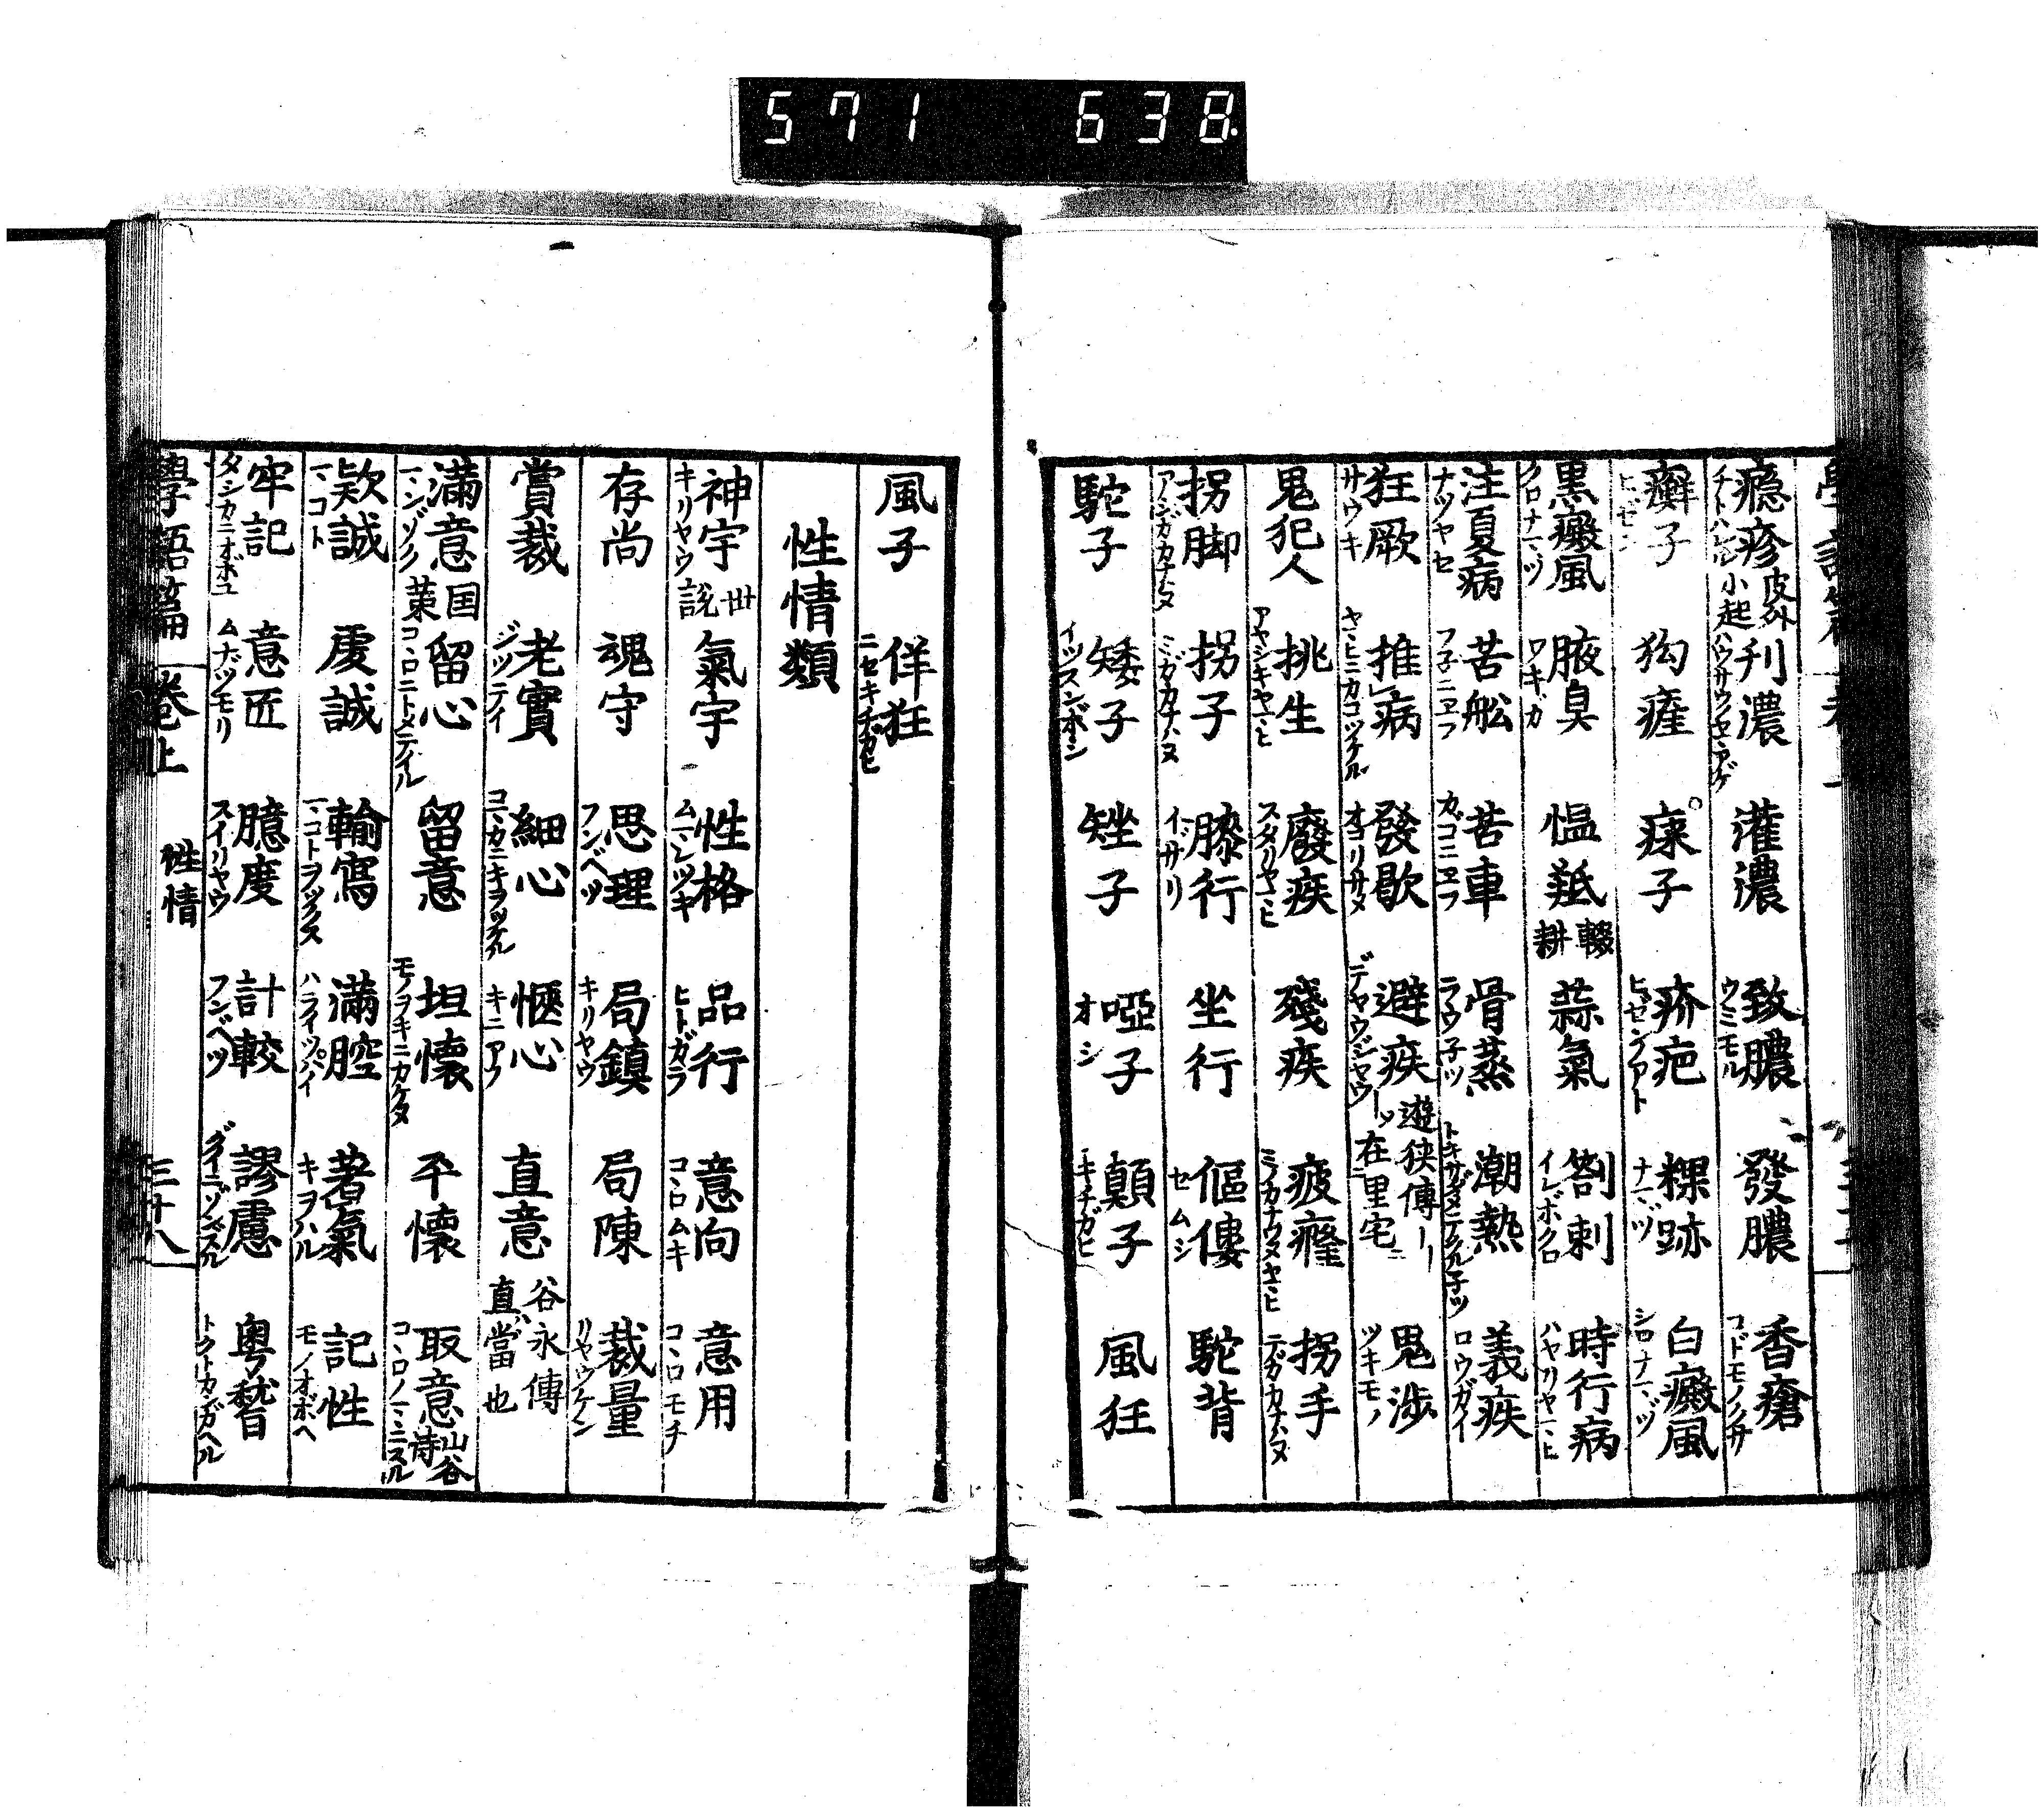 571 638
癮疹 チトハレル 皮外小起 刋濃 ハウサウクサラゲ 灌濃 致膿 ウミモル 發膿 香瘡 コドモノクサ
癬子 ヒゼン 狗瘇 瘃子 疥疤 ヒゼンアト 粿跡 ナマヅ 白癜風 シロナマヅ
黒癜風 クロナマヅ 腋臭 ワキガ 愠羝 輟耕 蒜氣 劄刺 イレボクロ 時行病 ハヤリヤマヒ
注夏病 ナツヤセ 苦舩 フ子ニヱフ 苦車 カゴニヱフ 骨蒸 ラウ子ツ 潮熱 トキサダメテクル子ツ 義疾 ロウガイ
狂厥 サウキ 推病 ヤマヒニカコツケル 發歇 オコリサメ 避疾 デヤウジヤウ 遊狭傳 在里宅 鬼涉 ツキモノ
鬼犯人 挑生 アヤシキヤマヒ 廢疾 スタリヤマヒ 殘疾 疲癃 ミノカナワヌヤマヒ 拐手 テガカナハヌ
拐脚 アシガカナハヌ 拐子 ミガカナハヌ 膝行 イザリ 坐行 傴僂 セムシ 駝背
駝子 矮子 イツスンボシ 矬子 啞子 オシ 顛子 キチガヒ 風狂
風子 佯狂 ニセキチガヒ
性情類
神宇 キリヤウ 世說 氣宇 性格 ムマレツキ 品行 ヒトガラ 意向 コヽロムキ 意用 コヽロモチ
存尚 魂守 思理 フンベツ 局鎮 キリヤウ 局陳 裁量 リヤウケン
賞裁 老實 ジツテイ 細心 コマカニキヲツケル 愜心 キニアフ 直意 谷永傳 直ハ當也
滿意 マンゾク 国策 留心 コヽロニトメテイル 留意 坦懐 モノヲキニカケヌ 平懐 取意 コヽロノマヽニスル 山谷詩
欵誠 マコト 虔誠 輸寫 マコトヲツクス 滿腔 ハライツパイ 著氣 キヲハル 記性 モノオボヘ
牢記 タシカニオボユ 意匠 ムナヅモリ 臆度 スイリヤウ 計較 フンベツ 謬慮 粤稽 トクトカンガヘル
學語篇 卷上 性情 三十八